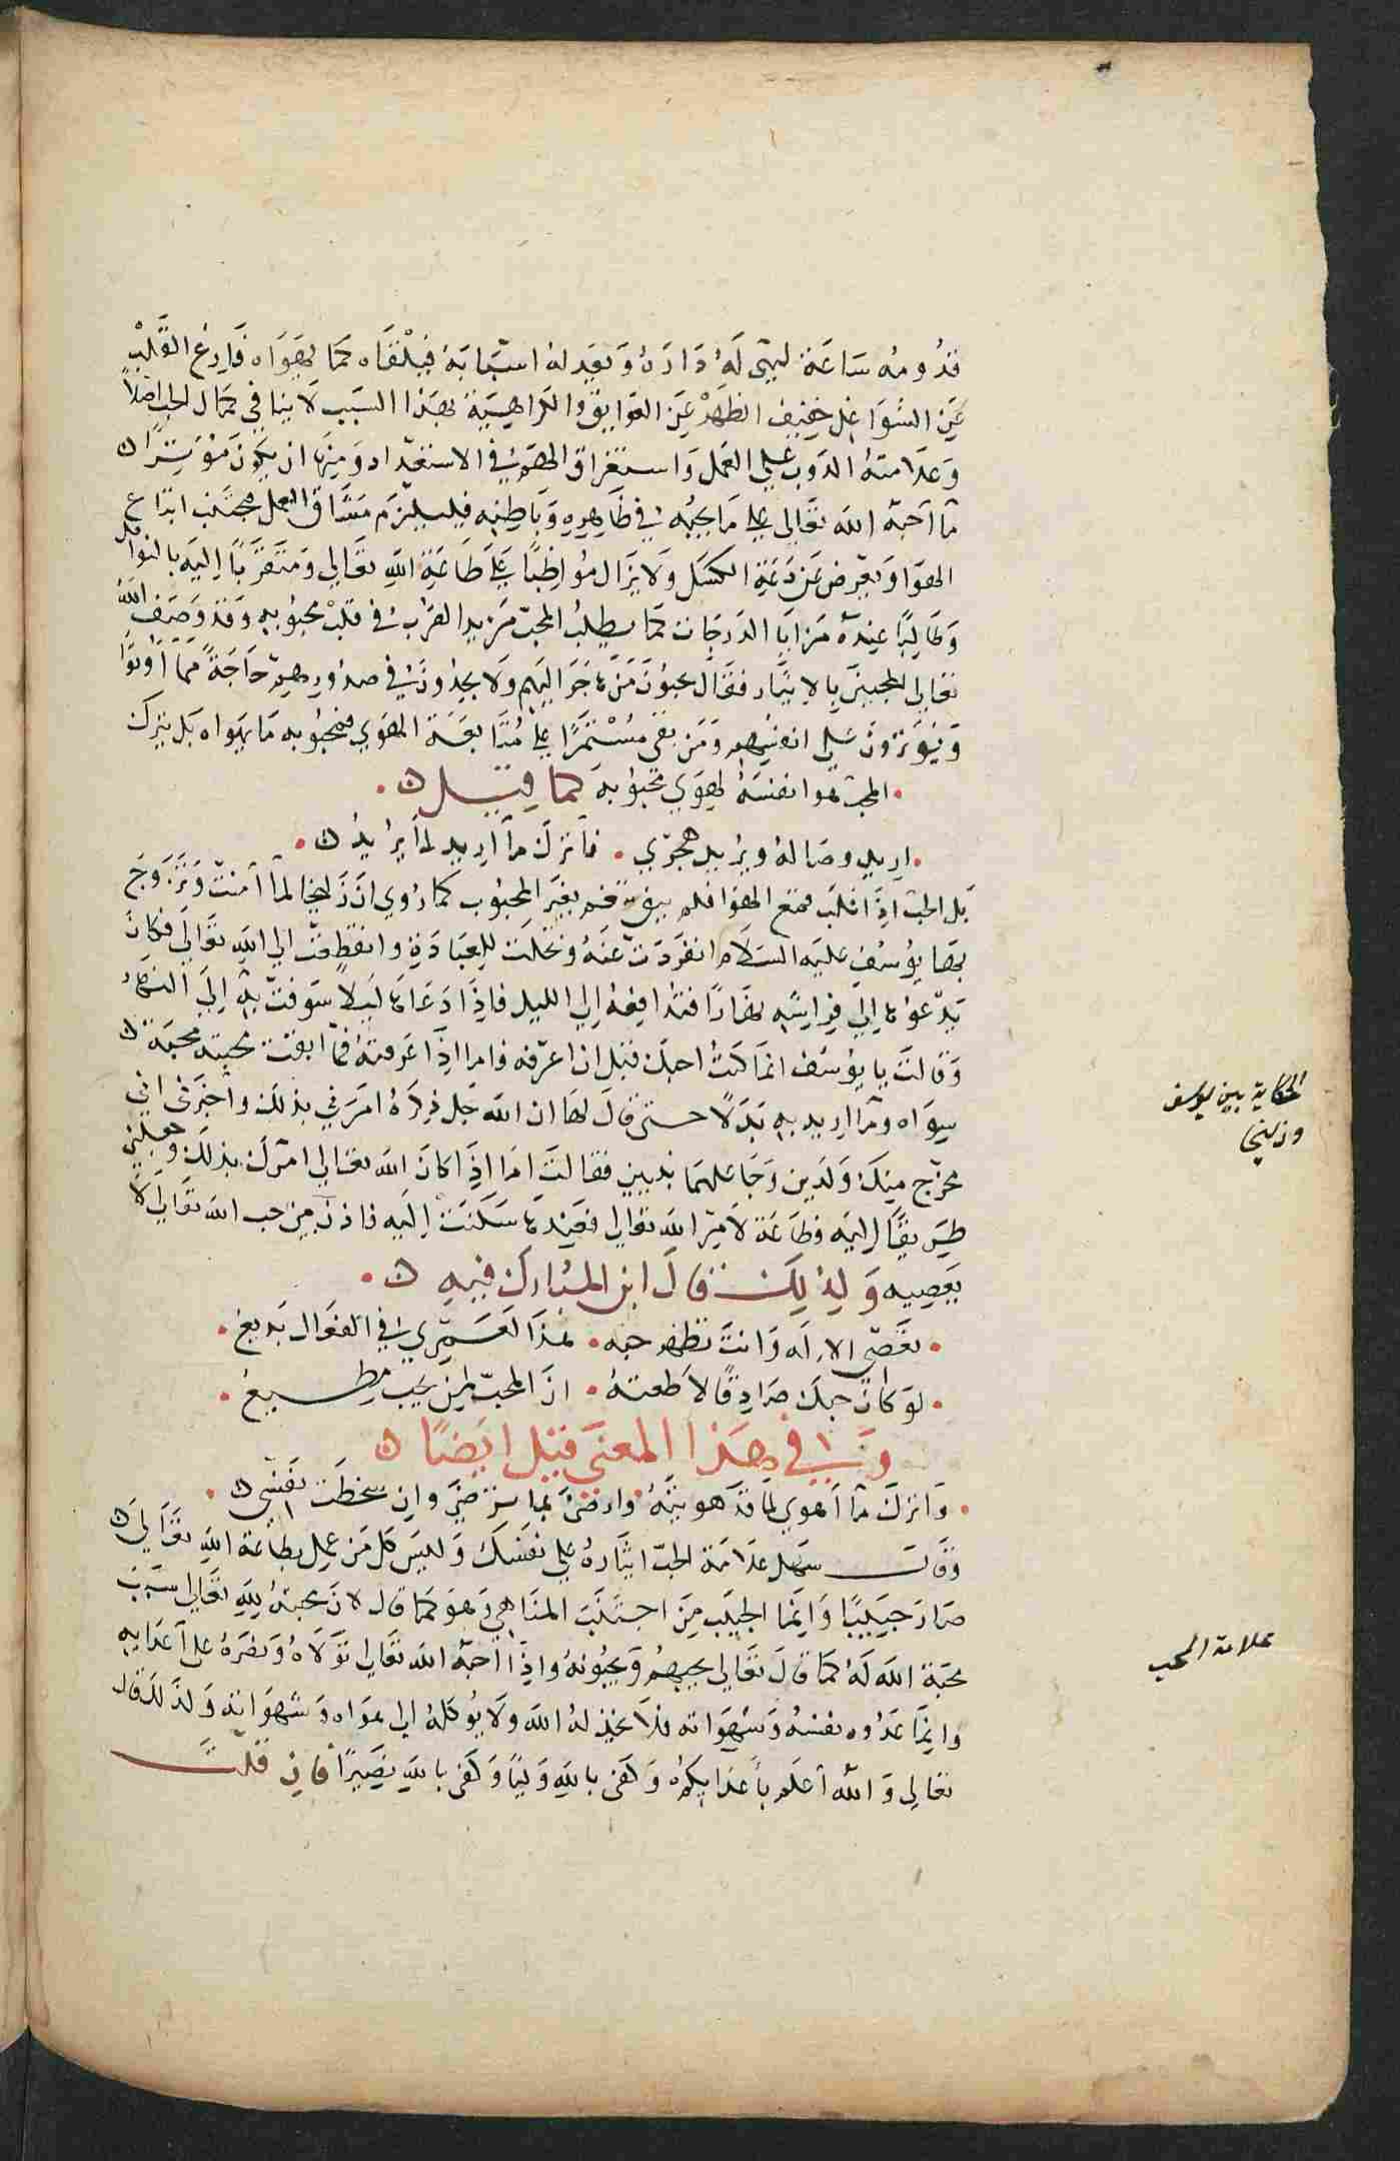 قدومه ساعة ليهي له داره ويعد له اسبابه فيلقاه كما يهواه فارغ القلب
عن الشواغل خفيف الظهر عن العوايق والكراهية بهذا السبب لا ينافي كمال الحب اصلاً
وعلامته الدوب علي العمل واستغراق الهم في الاستعداد ومنها ان يكون موثرا
ما احبه الله تعالي علي ما يحبه في ظاهره وباطنه فيلتزم مشاق العمل ويجتنب اتباع
الهوا ويعرض عن دعة الكسل ولا يزال مواظباً علي طاعة الله تعالي ومتقرباً اليه بالنوافل
وطالبًا عنده مزايا الدرجات كما يطلب المحب مزيد القرب في قلب محبوبه وقد وصف الله
تعالي المحبين بالايثار فقال يحبون من هاجر اليهم ولا يجدون في صدورهم حاجةً مما اوتوا
ويوثرون علي انفسهم ومن بقي مستمرًا علي متابعة الهوي فمحبوبه ما يهواه بل يترك
المحب هوا نفسه لهوي محبوبه كما قيل
اريد وصاله ويريد هجري . فاترك ما اريد لما يريد
بل الحب اذا غلب قمع الهوا فلم يبق تنعم بغير المحبوب كما روي ان زليخا لما آمنت وتزوج
بها يوسف عليه السلام انفردت عنه وتخلت للعبادة وانقطعت الي الله تعالي فكان
يدعوها الي فراشه نهارًا فتدافعه الي الليل فاذا دعاها ليلاً سوفت به الي النهار
وقالت يا يوسف انما كنت احبك قبل ان اعرفه فاما اذا عرفته فما ابقت محبته محبة
سواه وما اريد به بدلاً حتى قال لها ان الله جل ذكره امرني بذلك واخبرني اني
مخرج منك ولدين وجاعلهما نبيين فقالت اما اذا كان الله تعالي امرك بذلك وجعلني
طريقا اليه فطاعة لامر الله تعالي فعندها سكنت اليه فاذن من حب الله تعالي لا
يعصيه ولذلك قال ابن المبارك فيه
تعصي الاله وانت تظهر حبه . هذا لعمري في الفعال بديع
لو كان حبك صادقًا لاطعته . ان المحب لمن يحب مطيع
وفي هذا المعني قيل ايضًا
واترك ما اهوي لما قد هويته . وارضي بما ترضي وان سخطت نفسي
وقال سهل علامة الحب ايثاره علي نفسك وليس كل من عمل بطاعة الله تعالي
صار حبيبًا وانما الحبيب من اجتنب المناهي وهو كما قال لان محبته لله تعالي سبب
محبة الله له كما قال تعالي يحبهم ويحبونه واذا احبه الله تعالي تولاه ونصره علي اعدايه
وانما عدوه نفسه وشهواته فلا يخذله الله ولا يوكله الي هواه وشهواته ولذلك قال
تعالي والله اعلم باعدايكم وكفي بالله وليًا وكفي بالله نصيرًا فان قلت
الحكاية بين يوسف
وزليخا
علامة المحب